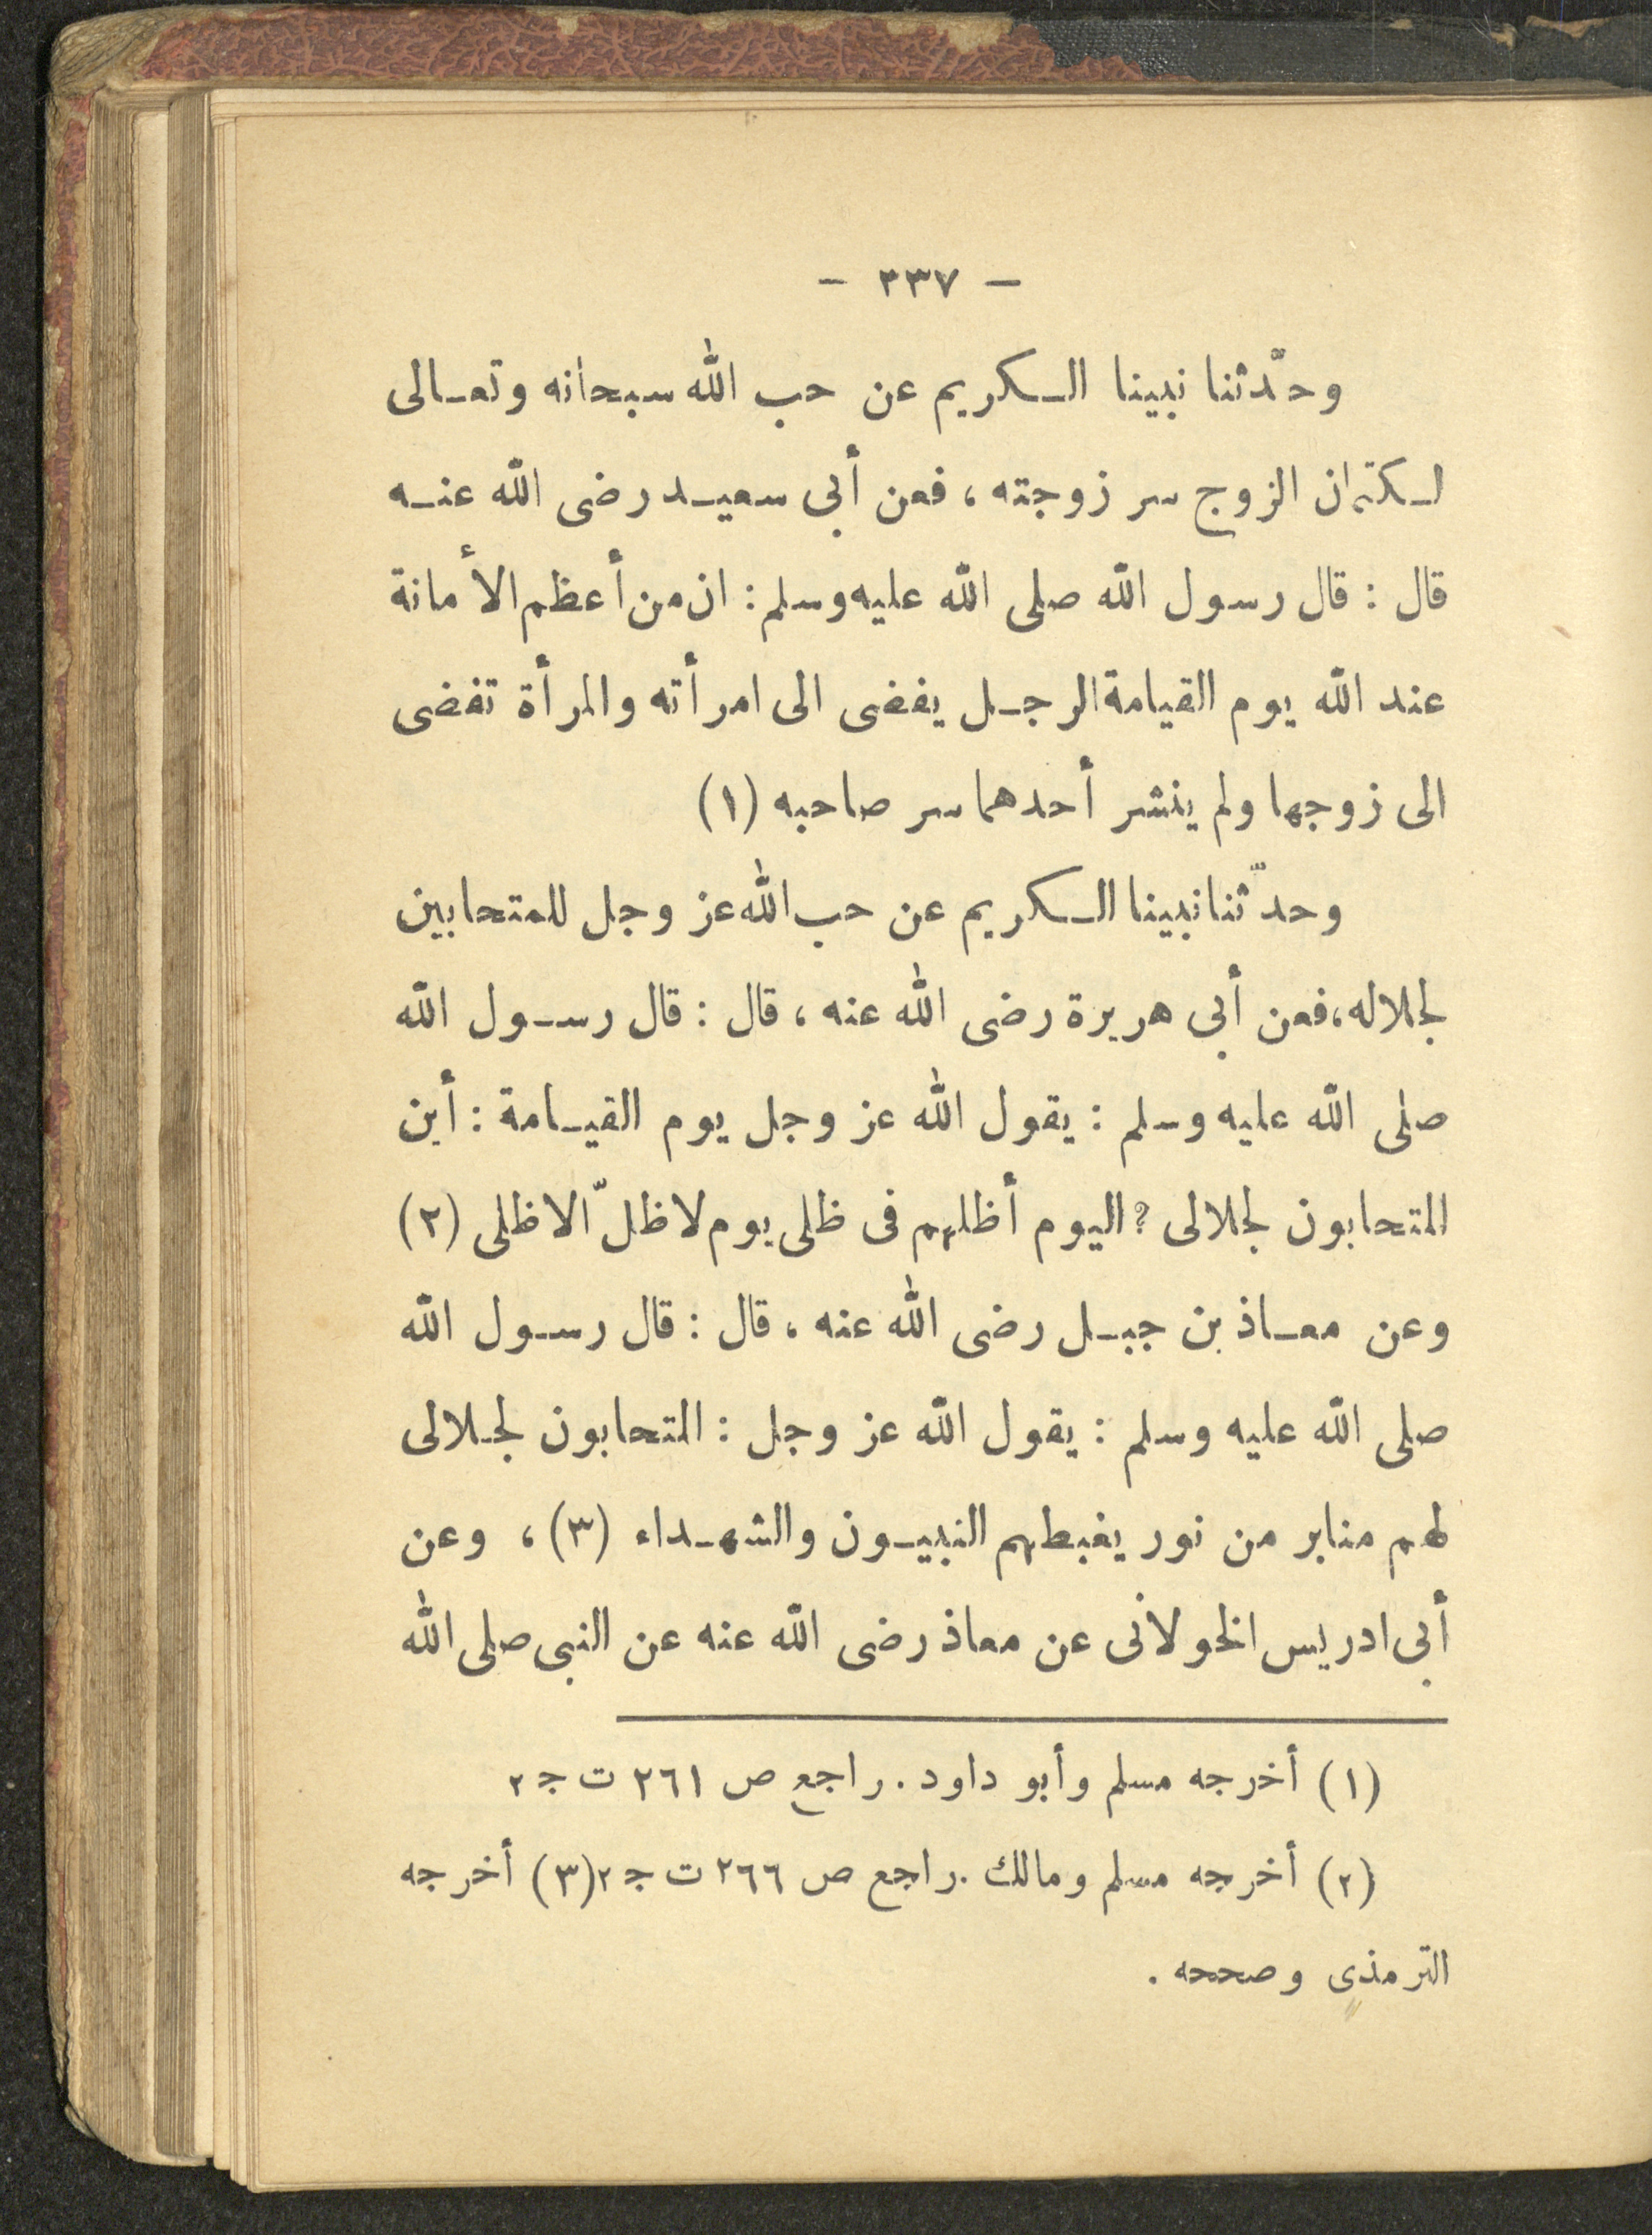 — ٢٣٧ —
وحدّثنا نبينا الكريم عن حب الله سبحانه وتعالى
لكتمان الزوج سر زوجته ، فعن أبى سعيد رضى الله عنه
قال : قال رسول الله صلى الله عليه وسلم : ان من أعظم الأمانة
عند الله يوم القيامة الرجل يفضى الى امرأته والمرأة تفضى
الى زوجها ولم ينشر أحدهما سر صاحبه (١)
وحدّثنا نبينا الكريم عن حب الله عز وجل للمتحابين
لجلاله ، فعن أبى هريرة رضى الله عنه ، قال : قال رسول الله
صلى الله عليه وسلم : يقول الله عز وجل يوم القيامة : أين
المتحابون لجلالى ؟ اليوم أظلهم فى ظلى يوم لا ظلّ الا ظلى (٢)
وعن معاذ بن جبل رضى الله عنه ، قال : قال رسول الله
صلى الله عليه وسلم : يقول الله عز وجل : المتحابون لجلالى
لهم منابر من نور يغبطهم النبيون والشهداء (٣) ، وعن
أبى ادريس الخولانى عن معاذ رضى الله عنه عن النبى صلى الله
(١) أخرجه مسلم وأبو داود . راجع ص ٢٦١ ت ج ٢
(٢) أخرجه مسلم ومالك . راجع ص ٢٦٦ ت ج ٢ (٣) أخرجه
الترمذى وصححه .